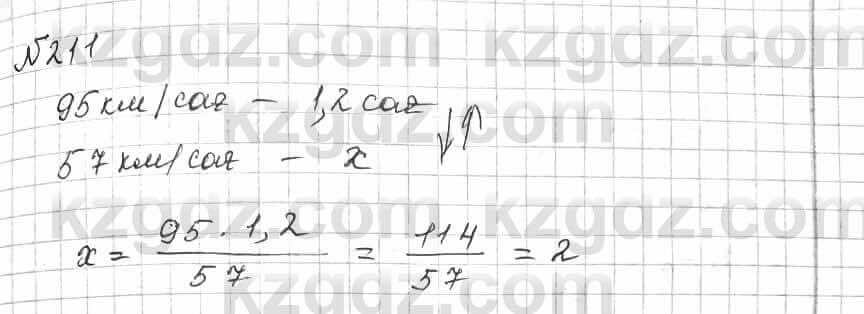 №211
95 км/сағ – 1,2 сағ ↓↑
57 км/сағ – x
x = 95 · 1,2 / 57 = 114 / 57 = 2
kzgdz.com kzgdz.com
kzgdz.com
kzgdz.com kzgdz.com
kzgdz.com